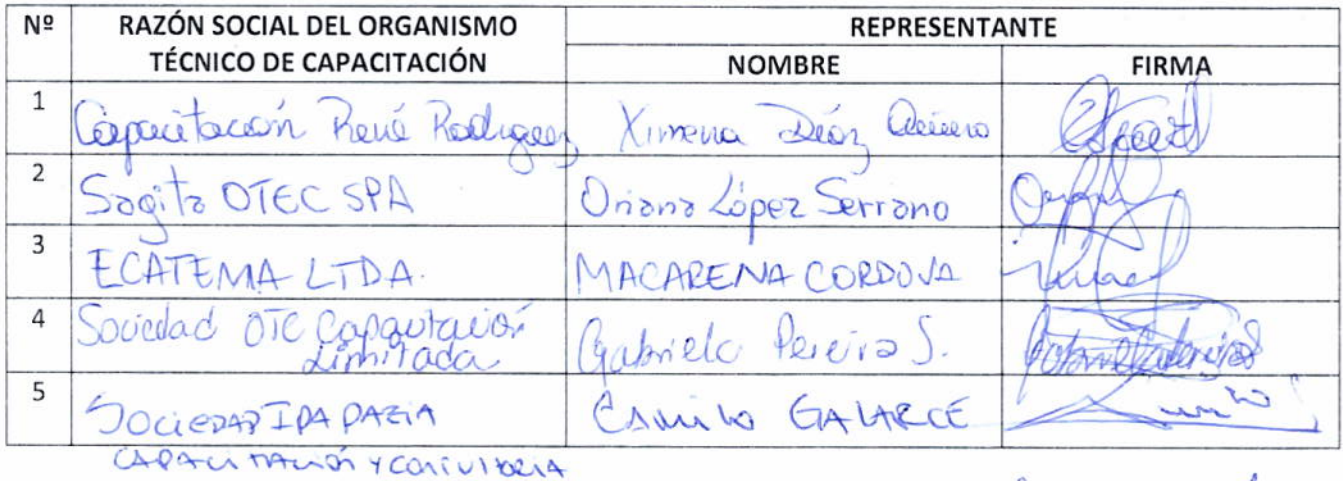 Nº RAZÓN SOCIAL DEL ORGANISMO TÉCNICO DE CAPACITACIÓN REPRESENTANTE
NOMBRE FIRMA
1 Capacitación René Rodríguez Ximena Díaz
2 Sagita OTEC SPA Oriana López Serrano
3 ECATEMA LTDA. MACARENA CORDOVA
4 Sociedad OTC Capacitación Limitada Gabriela Pereira S.
5 SOCIEDAD CAPACITACIÓN Y CONSULTORIA Camilo GALARCE